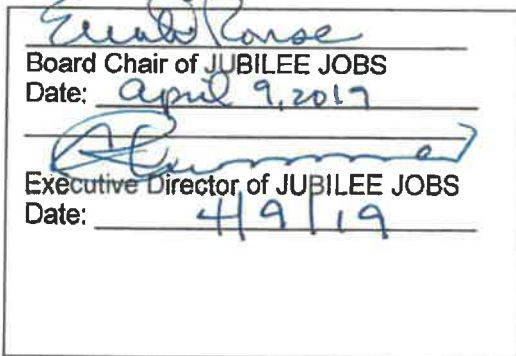 Board Chair of JUBILEE JOBS
Date: April 9, 2019
Executive Director of JUBILEE JOBS
Date: 4/9/19